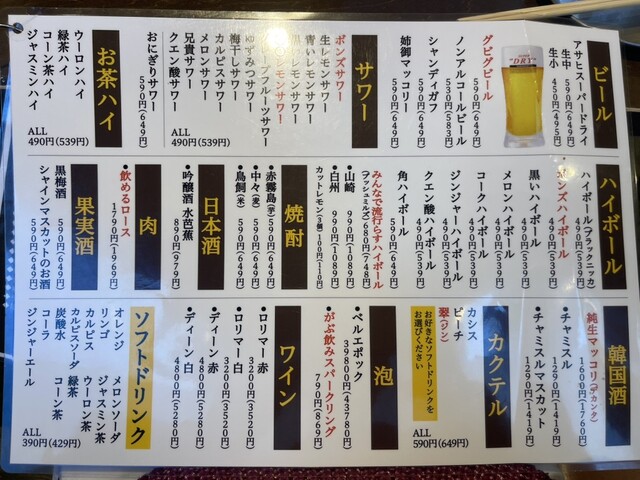 ビール
アサヒスーパードライ
生中 590円(649円)
生小 450円(495円)
SUPER "DRY"
グビグビール 590円(649円)
ノンアルコールビール 530円(583円)
シャンディガフ 590円(649円)
姉御マッコリー 590円(649円)
サワー
ボンズサワー
生レモンサワー
青いレモンサワー
梅干しサワー
カルピスサワー
メロンサワー
兄貴サワー
クエン酸サワー
ALL
490円(539円)
おにぎりサワー 590円(649円)
お茶ハイ
ウーロンハイ
緑茶ハイ
コーン茶ハイ
ジャスミンハイ
ALL
490円(539円)
ハイボール
ハイボール(ブラックニッカ) 490円(539円)
ボンズハイボール 490円(539円)
黒いハイボール 490円(539円)
メロンハイボール 490円(539円)
コークハイボール 490円(539円)
ジンジャーハイボール 490円(539円)
クエン酸ハイボール 490円(539円)
角ハイボール 590円(649円)
みんなで流行らすハイボール
(ブッシュミルズ) 680円(748円)
•山崎 990円(1089円)
•白州 990円(1089円)
カットレモン(1個) 100円(110円)
焼酎
•赤霧島(芋) 590円(649円)
•中々(麦) 590円(649円)
•鳥飼(米) 590円(649円)
日本酒
•吟醸酒 水芭蕉 890円(979円)
肉
•飲めるロース 1790円(1969円)
果実酒
黒梅酒 590円(649円)
シャインマスカットのお酒 590円(649円)
韓国酒
•純生マッコリ(デカンタ) 1600円(1760円)
•チャミスル 1290円(1419円)
•チャミスルマスカット 1290円(1419円)
カクテル
カシス
ピーチ
翠(ジン)
お好きなソフトドリンクを
お選びください
ALL
590円(649円)
泡
•ベルエポック 39800円(43780円)
•がぶ飲みスパークリング 790円(869円)
ワイン
•ロリマー 赤 3200円(3520円)
•ロリマー 白 3200円(3520円)
•ディーン 赤 4800円(5280円)
•ディーン 白 4800円(5280円)
ソフトドリンク
オレンジ
リンゴ
カルピス
カルピスソーダ
炭酸水
コーラ
ジンジャーエール
メロンソーダ
ジャスミン茶
ウーロン茶
緑茶
コーン茶
ALL
390円(429円)